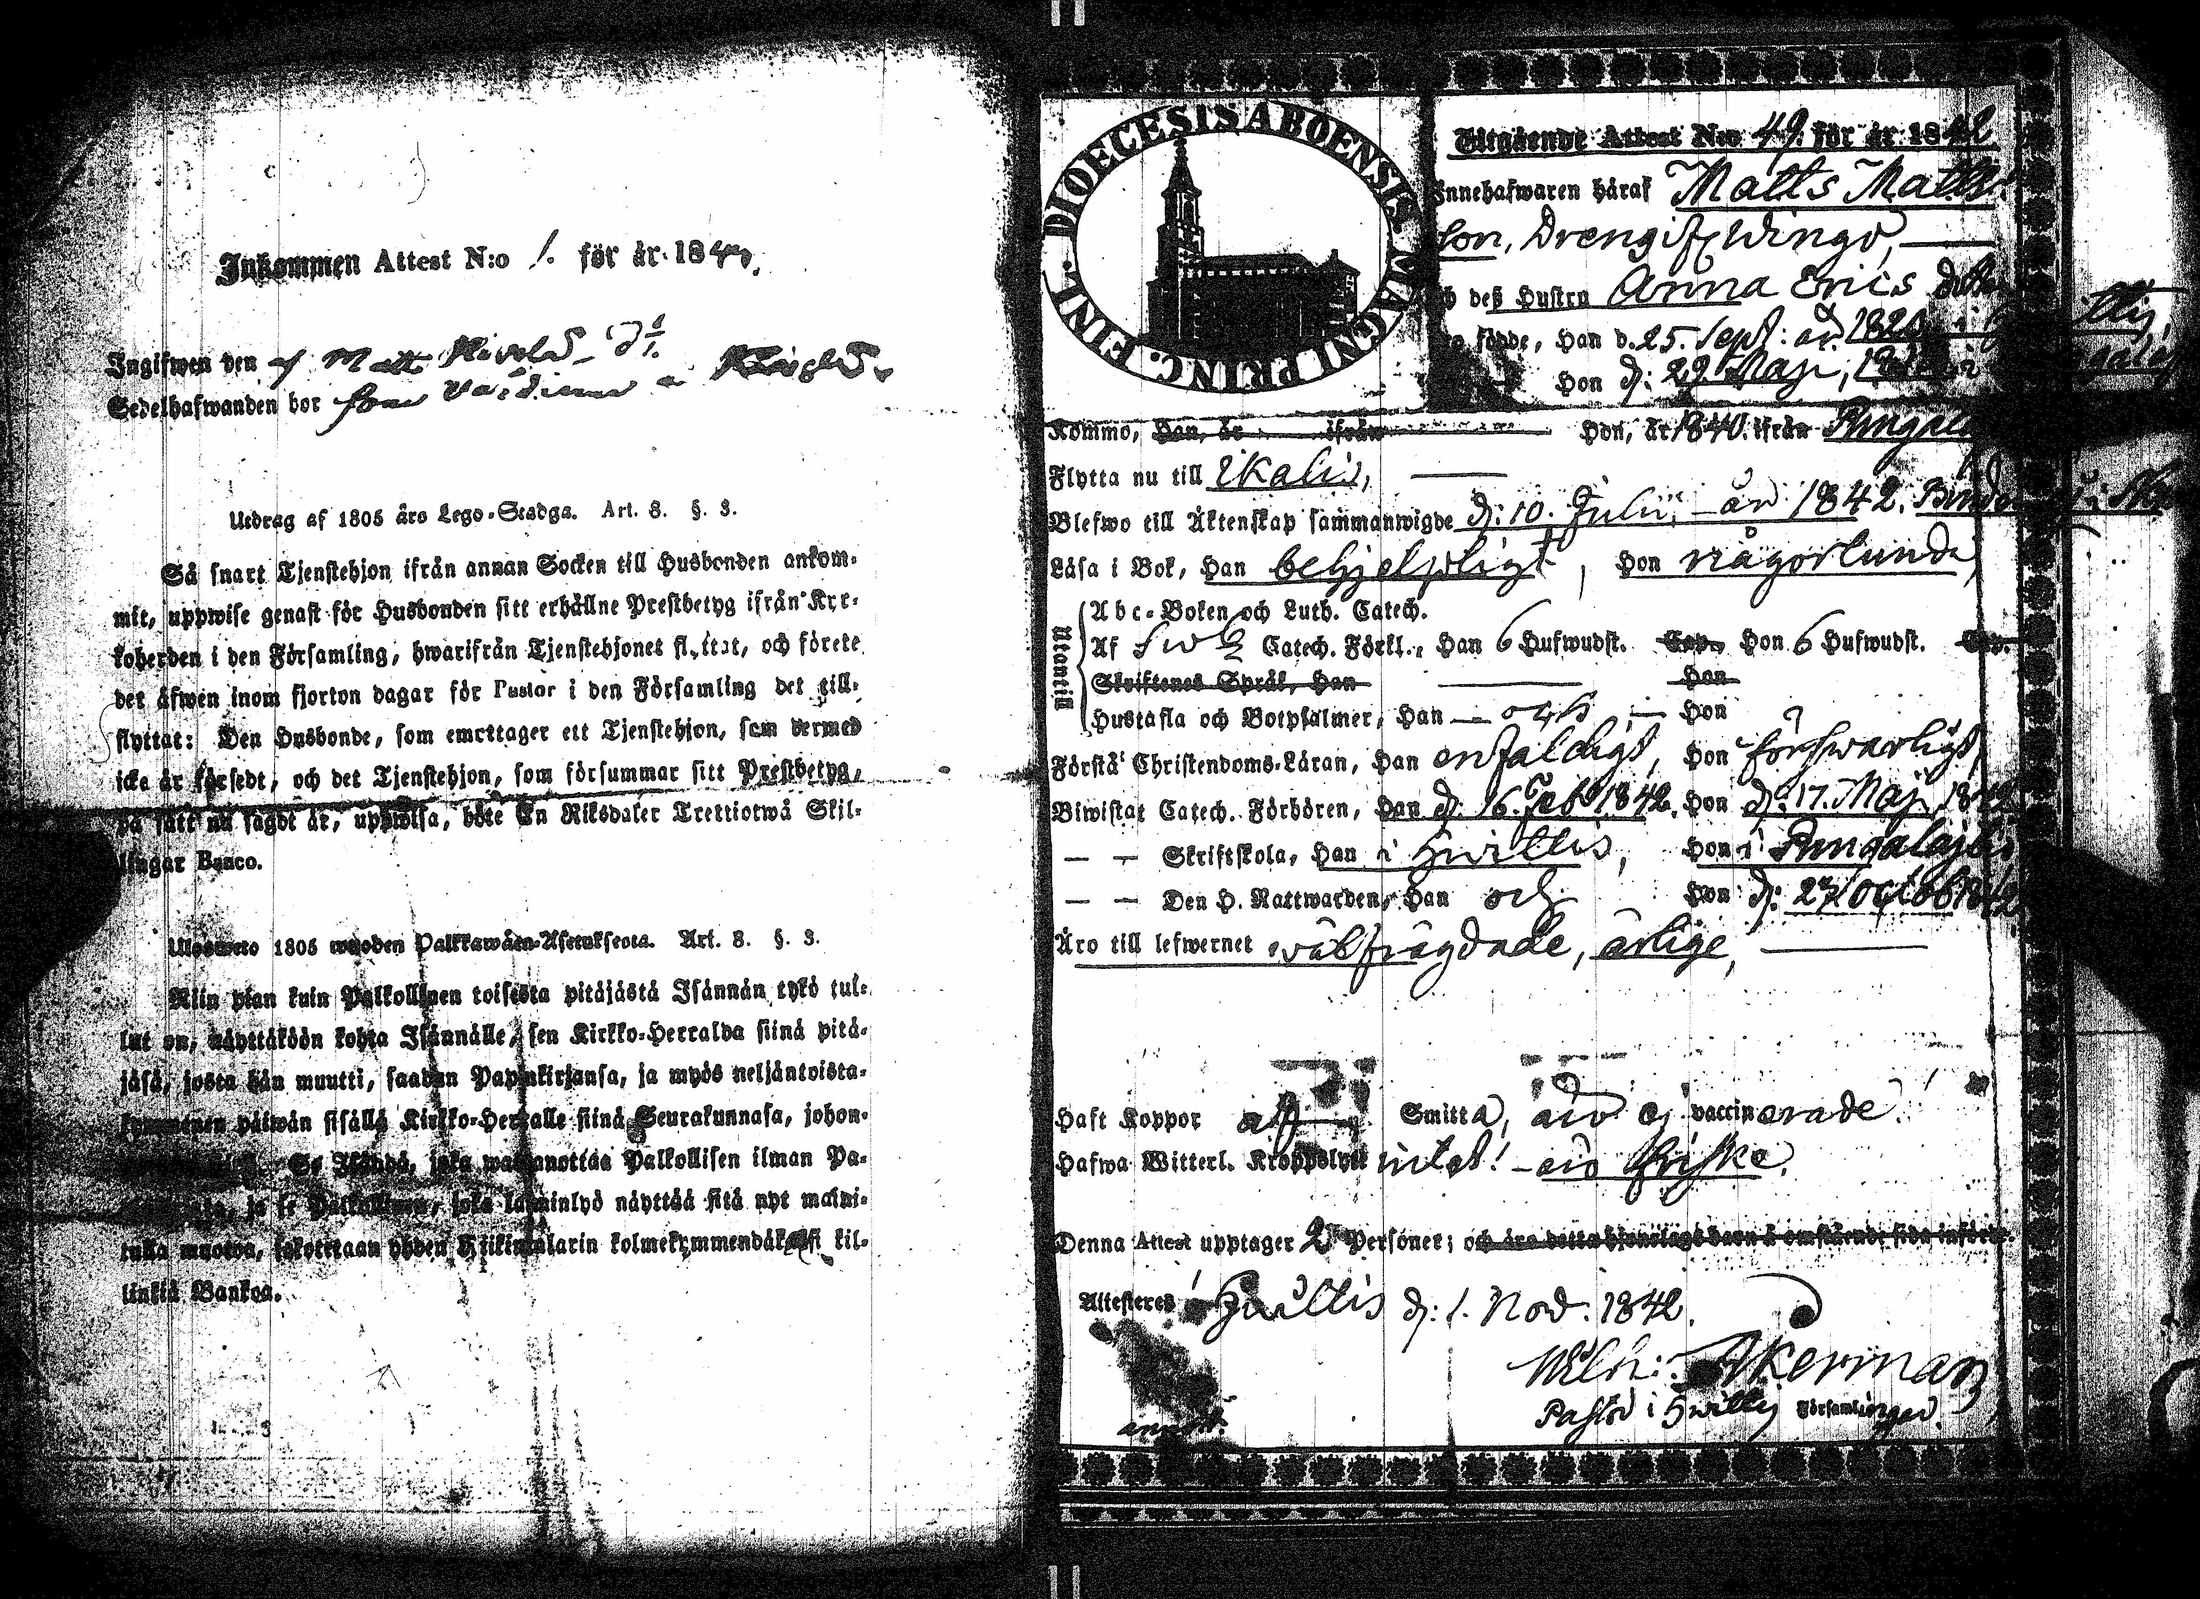 Inkommen Attest N:o 1. för år 184
Ingifwen den af Matts
Sedelhafwanden bor
Utdrag af 1805 års Lego-Stadga. Art. 8. §. 3.
Så snart Tjenstehjon ifrån annan Socken till Husbonden ankom-
mit, uppwise genast för Husbonden sitt erhållne Prestbetyg ifrån Kyr-
koherden i den Församling, hwarifrån Tjenstehjonet flyttat, och förete
det äfwen inom fjorton dagar för Pastor i den Församling det till-
flyttat: Den Husbonde, som emottager ett Tjenstehjon, som dermed
icke är försedt, och det Tjenstehjon, som försummar sitt Prestbetyg,
på sätt nu sagdt är, uppwisa, böte En Riksdaler Trettiotwå Skil-
lingar Banco.
Ulosweto 1805 wuoden Palkkawäen-Asetuksesta. Art. 8. §. 3.
Niin pian kuin Palkollinen toisesta pitäjästä Isännän tykö tul-
lut on, näyttäköön kohta Isännälle, sen Kirkko-Herralda siinä pitä-
jäsä, josta hän muutti, saadun Papinkirjansa, ja myös neljäntoista-
kymmenen päiwän sisällä Kirkko-Herralle siinä Seurakunnasa, johon-
Se Isändä, joka wastanottaa Palkollisen ilman Pa-
ja se Palkollinen, joka laiminlyö näyttää sitä nyt maini-
tulla muotoa, sakotetaan yhden Riikintalarin kolmekymmendäkaksi kil-
linkiä Bankoa.
DIOECESIS ABOENSIS MAGNI PRINC. FINL.
Utgående Attest N:o 49. för år 1842
Innehafwaren häraf Matts Matts-
son, Dreng ifr Wingo,
och deß Hustru Anna Erics dotter
Äro födde, Han d. 25. Sept: år 182
Hon d: 29. Maji,
Kommo, Han, år ifrån Hon, år 1840. ifrån Pungala
Flytta nu till Ikalis,
Blefwo till Äktenskap sammanwigde d: 10. Julii, år 1842.
Läsa i Bok, Han behjelpligt, Hon någorlunda,
Utantill
Abc-Boken och Luth. Catech.
Af Sw Catech. Förkl., Han 6 Hufwudst. Cap. Hon 6 Hufwudst. Cap.
Skriftenes Språk, Han Hon
Hustafla och Botpsalmer, Han — och — Hon
Förstå Christendoms-Läran, Han enfaldigt, Hon försvarligt,
Biwistat Catech. Förhören, Han d: 16. Feb. 1842. Hon d: 17. Maj. 1842
— — Skriftskola, Han i Hwittis, Hon i Pungalajtio
— — Den H. Nattwarden, Han och Hon d: 27 Octob 1842
Äro till lefwernet wälfrägdade, ärlige,
Haft Koppor Smitta, äro ej vaccinerade!
Hafwa Witterl. Kroppslyte intet! – äro friske.
Denna Attest upptager 2 Personer; och äro detta hjonelags barn å omstående sida införde.
Attesteres i Hwittis d: 1. Nov. 1842.
Wilh: Åkerman
Pastor i Hwittis Församlingar.
annot.